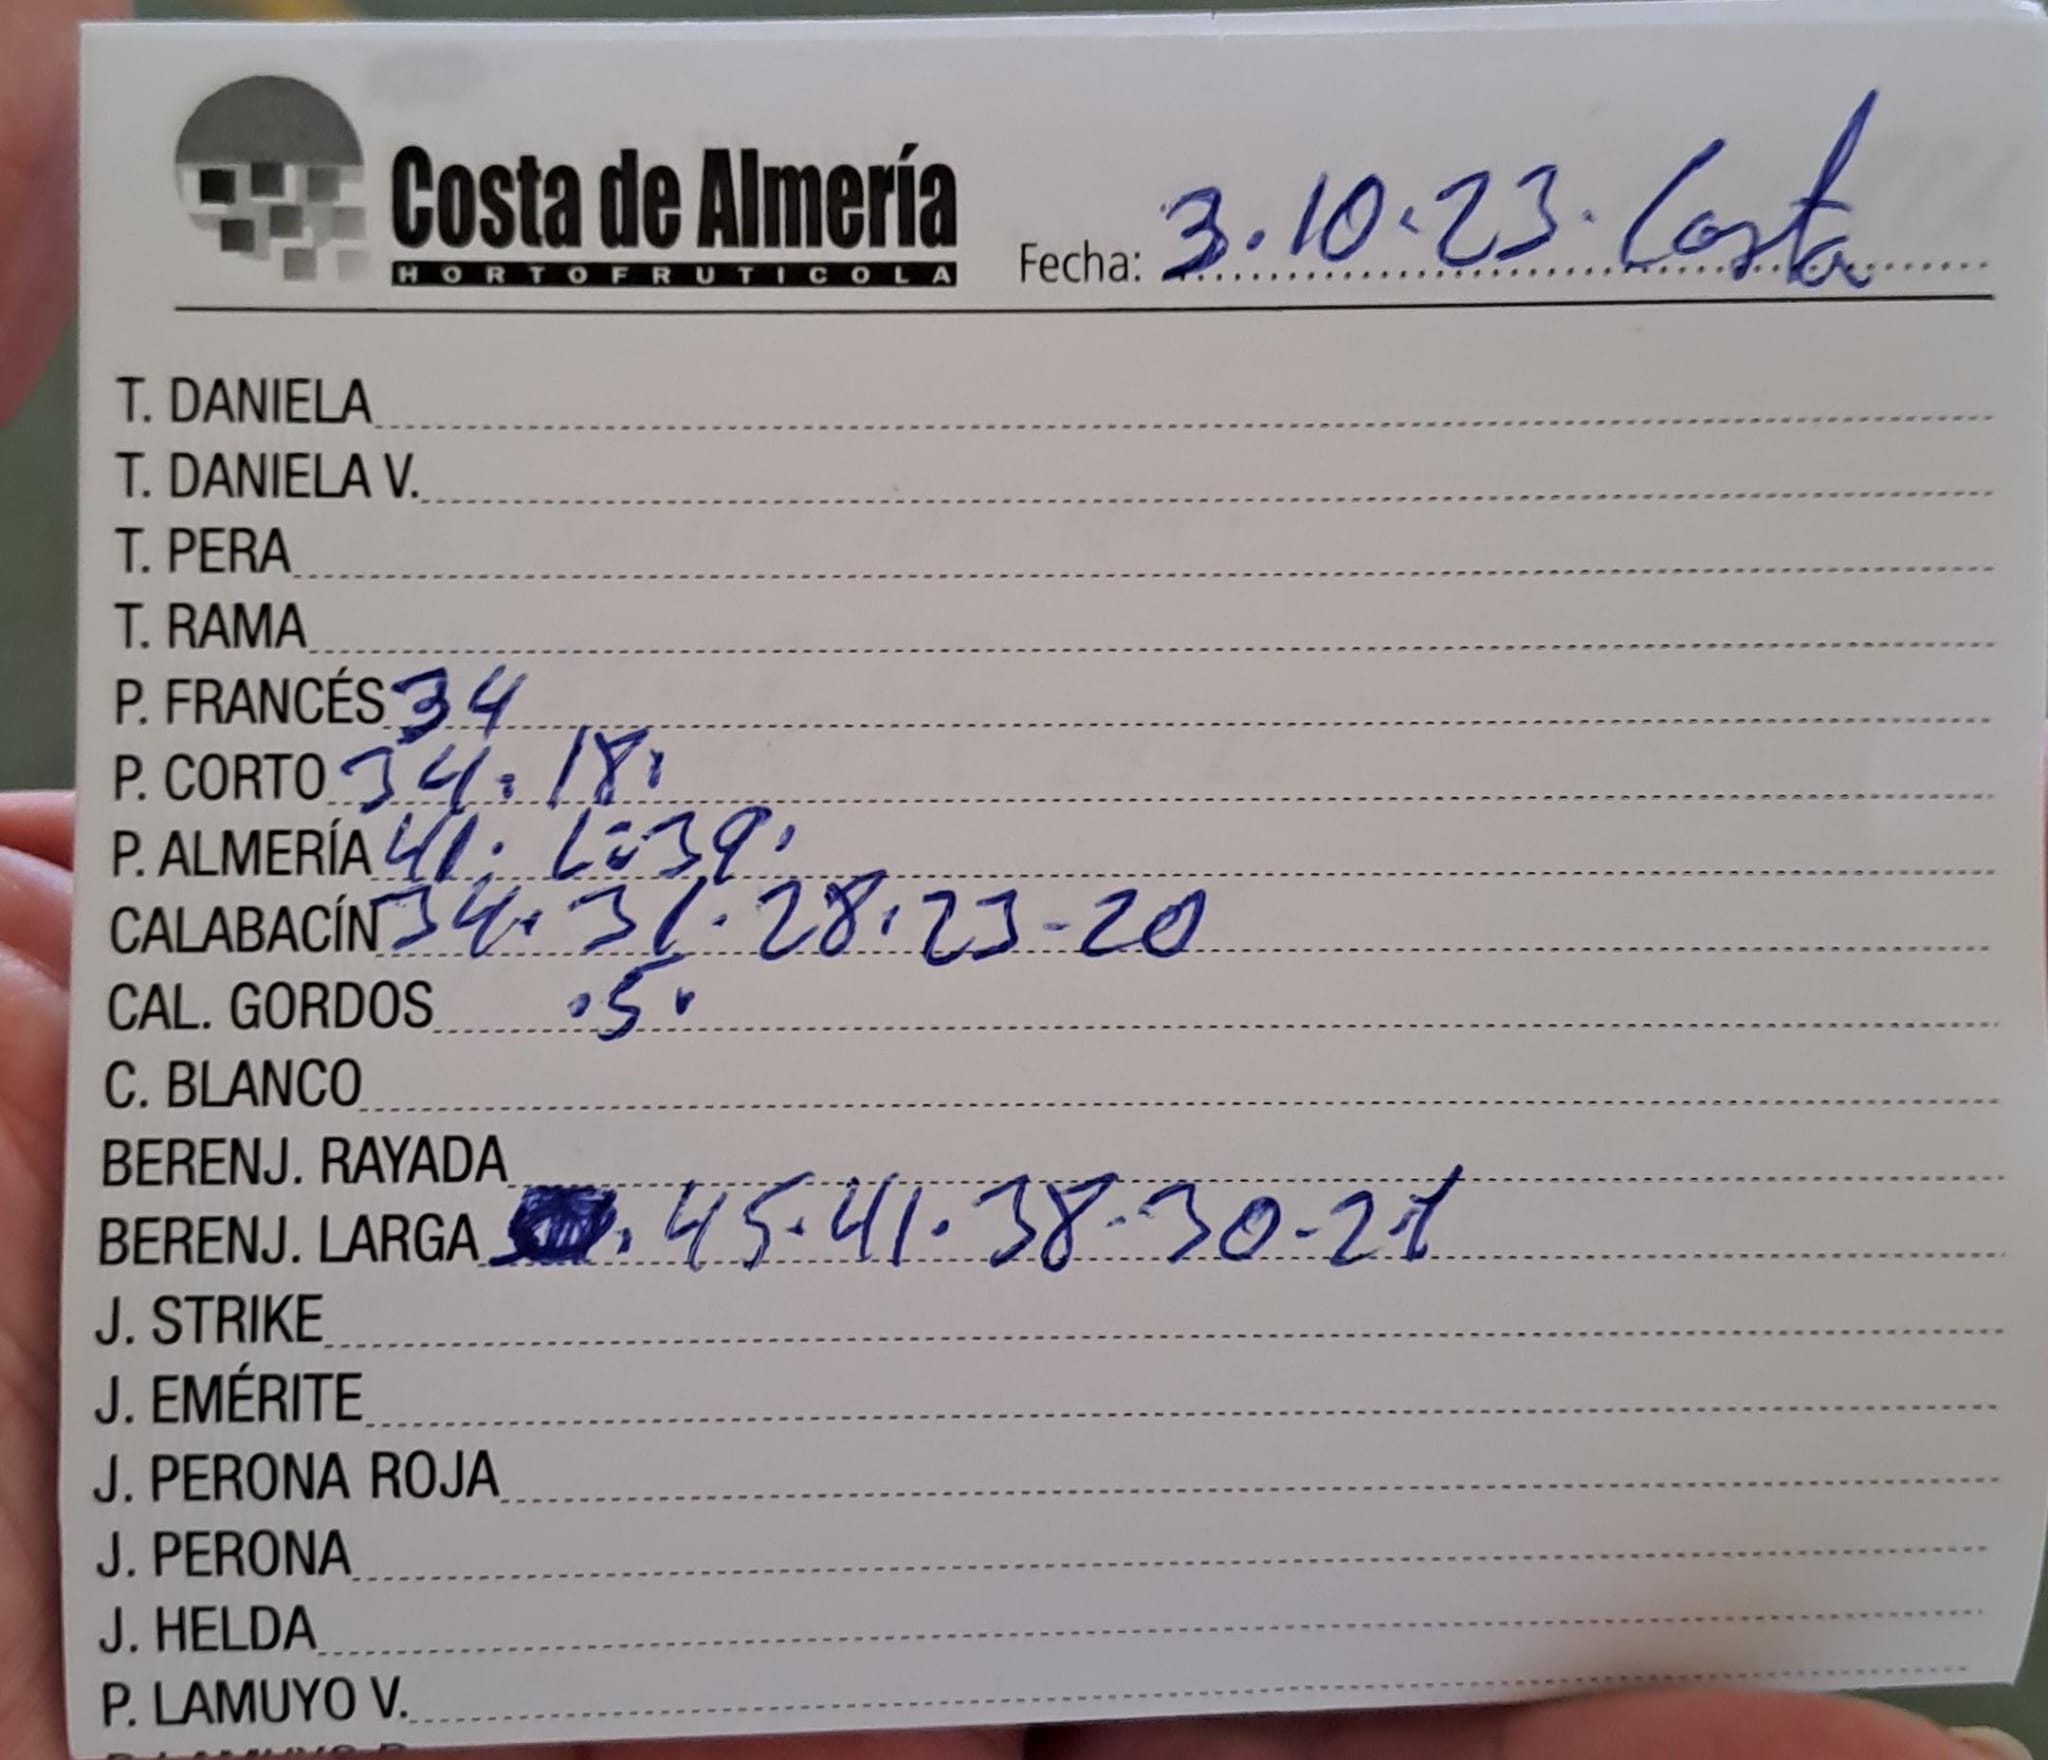 Costa de Almería
HORTOFRUTICOLA
Fecha: 3.10.23. Costa
T. DANIELA
T. DANIELA V.
T. PERA
T. RAMA
P. FRANCÉS 34
P. CORTO 34. 18.
P. ALMERÍA 41. L=39.
CALABACÍN 34. 31. 28. 23-20
CAL. GORDOS .5.
C. BLANCO
BERENJ. RAYADA
BERENJ. LARGA . 45. 41. 38-30-21
J. STRIKE
J. EMÉRITE
J. PERONA ROJA
J. PERONA
J. HELDA
P. LAMUYO V.